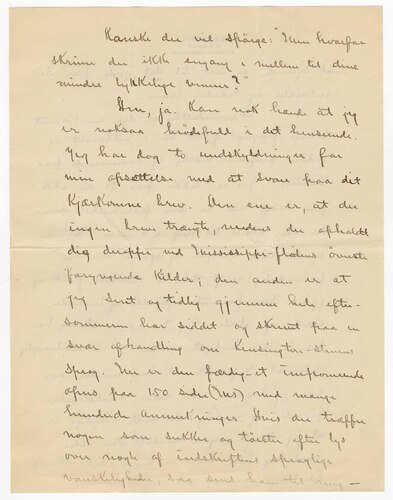 Kanske du vil spörge: "Men hvorfor
skriver du ikke engang i mellem til dine
mindre lykkelige venner?"
Hm, ja. Kan nok hände at jeg
er noksaa brödefuld i det henseende.
Jeg har dog to undskyldninger for
min opsættelse med at svare paa dit
kjærkomne brev. Den ene er, at du
ingen brev trængte, medens du opholdt
dig deroppe ved Mississippi-flodens överste
foryngende kilder; den anden er at
jeg sent og tidlig gjennem hele efter-
sommeren har siddet og skrevet paa en
svær afhandling om Kensington-stenens
sprog. Nu er den færdig - et imponerende
opus paa 150 sider (Ms) med mange
hundrede anmerkninger. Hvis du træffer
nogen som sukker og törster efter lys
over nogle af indskriftens sproglige
vanskeligheder, saa send ham til mig -